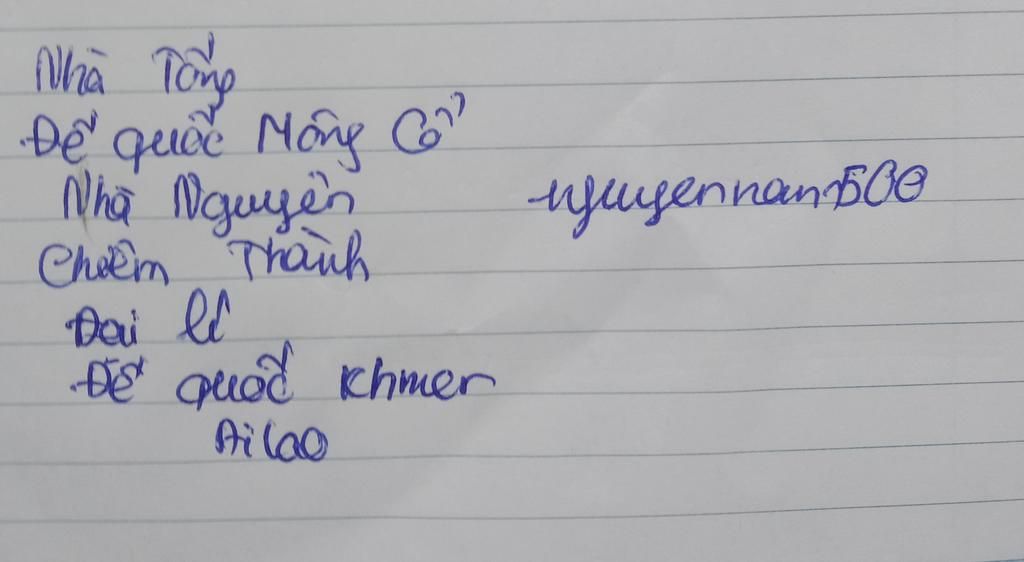 Nhà Tống
Đế quốc Mông Cổ
Nhà Nguyên nguyennam500
Chiêm Thành
Đại lí
Đế quốc Khmer
Ai lao